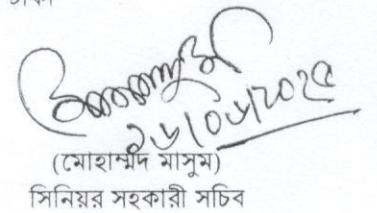 ১৬/০৬/২০২৫
(মোহাম্মদ মাসুম)
সিনিয়র সহকারী সচিব